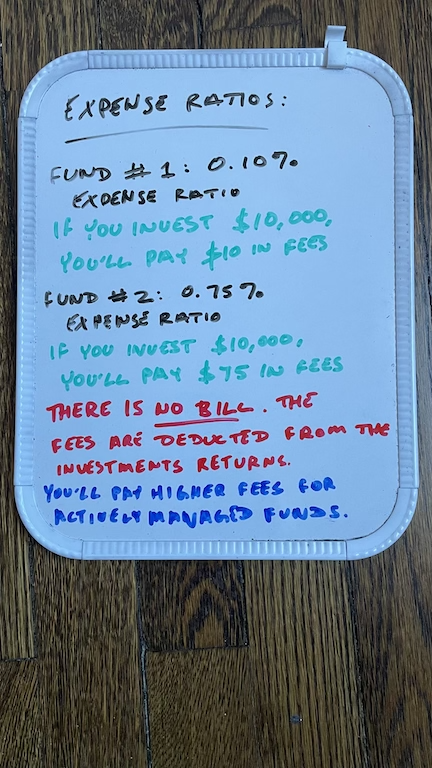 EXPENSE RATIOS:
FUND # 1: 0.10%
EXPENSE RATIO
IF YOU INVEST $10,000,
YOU'LL PAY $10 IN FEES
FUND #2: 0.75%
EXPENSE RATIO
IF YOU INVEST $10,000,
YOU'LL PAY $75 IN FEES
THERE IS NO BILL. THE
FEES ARE DEDUCTED FROM THE
INVESTMENTS RETURNS.
YOU'LL PAY HIGHER FEES FOR
ACTIVELY MANAGED FUNDS.